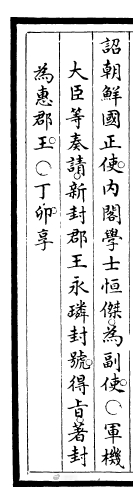 詔朝鮮國正使內閣學士恒傑為副使○軍機
大臣等奏請新封郡王永璘封號得旨著封
為惠郡王○丁卯享